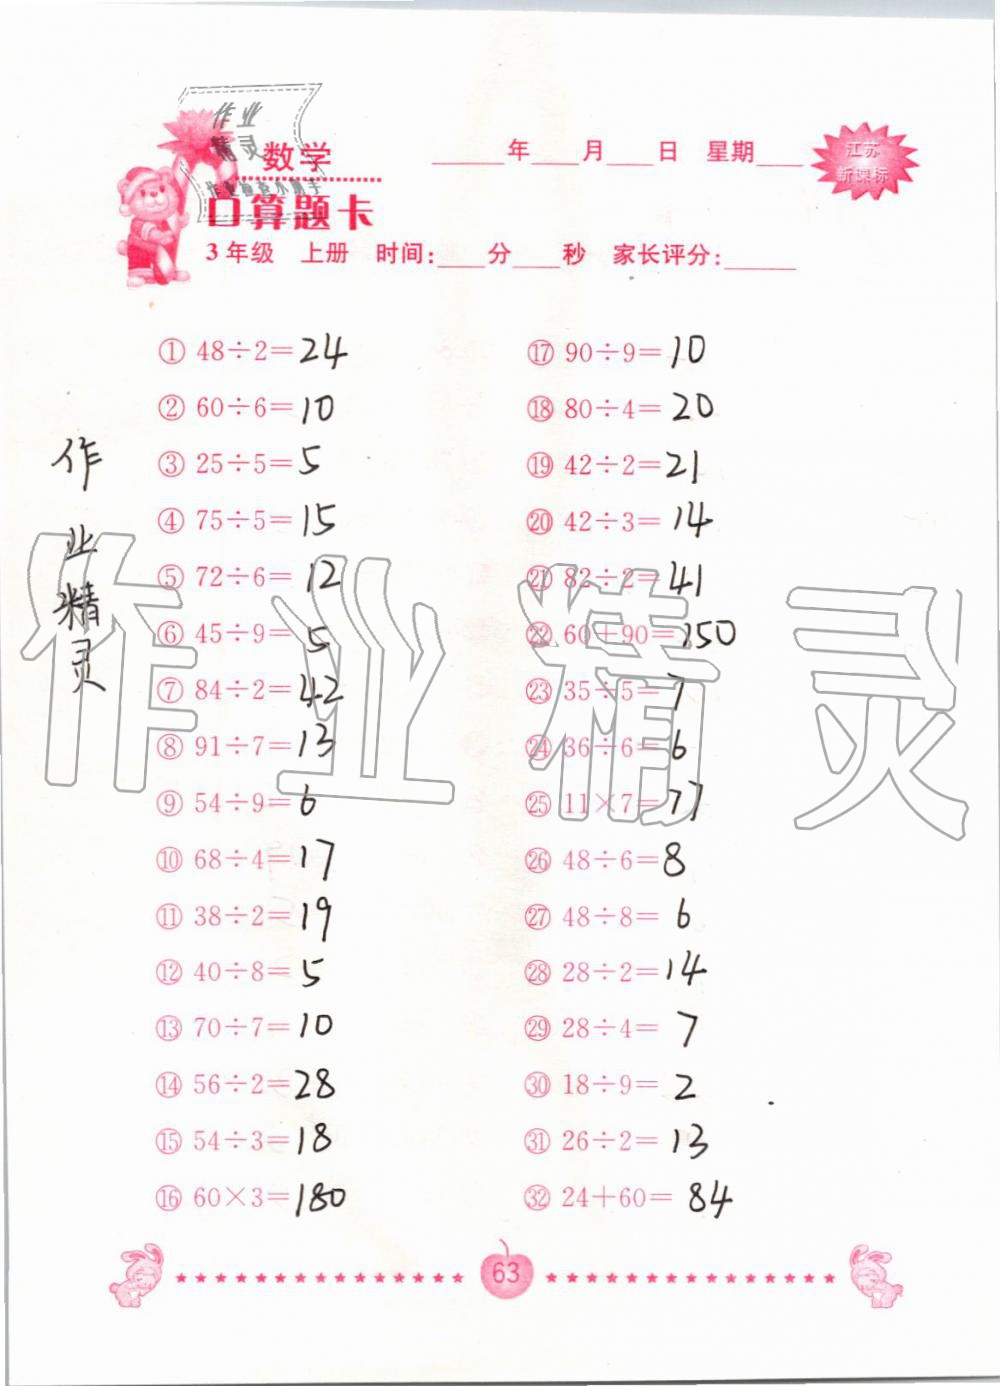 作业
精灵
作业检查小助手
数学
____年____月____日 星期____
江苏
新课标
口算题卡
3年级 上册 时间:____分____秒 家长评分:______
① 48÷2=24
② 60÷6=10
③ 25÷5=5
④ 75÷5=15
⑤ 72÷6=12
⑥ 45÷9=5
⑦ 84÷2=42
⑧ 91÷7=13
⑨ 54÷9=6
⑩ 68÷4=17
⑪ 38÷2=19
⑫ 40÷8=5
⑬ 70÷7=10
⑭ 56÷2=28
⑮ 54÷3=18
⑯ 60×3=180
⑰ 90÷9=10
⑱ 80÷4=20
⑲ 42÷2=21
⑳ 42÷3=14
㉑ 82÷2=41
㉒ 60+90=150
㉓ 35÷5=7
㉔ 36÷6=6
㉕ 11×7=77
㉖ 48÷6=8
㉗ 48÷8=6
㉘ 28÷2=14
㉙ 28÷4=7
㉚ 18÷9=2
㉛ 26÷2=13
㉜ 24+60=84
作
业
精
灵
作业精灵
63